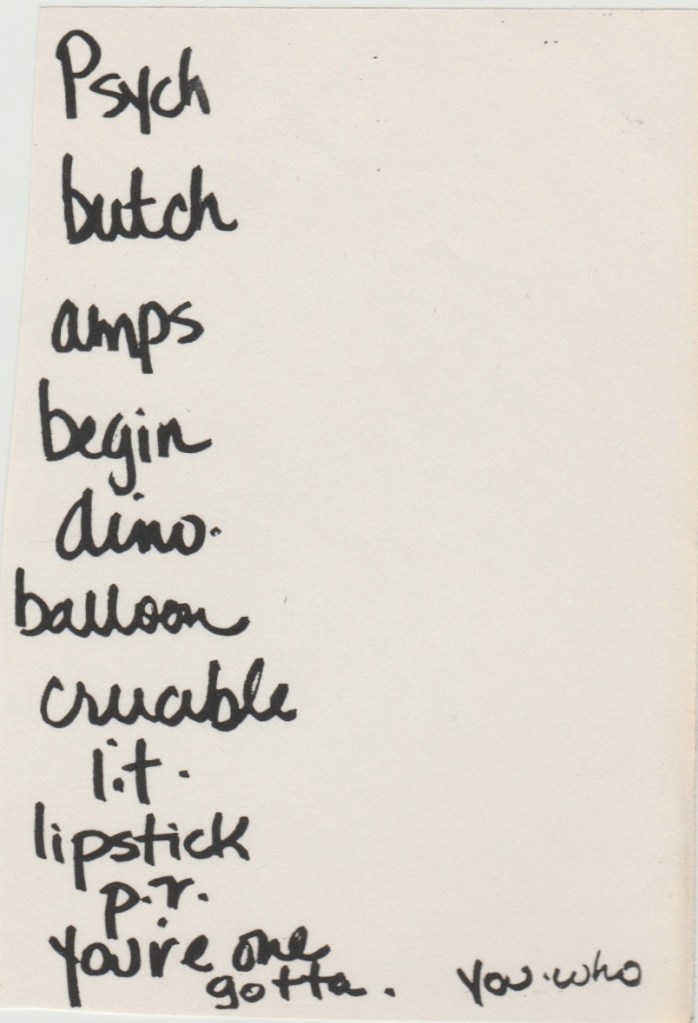 Psych
butch
amps
begin
dino.
balloon
crucible
l.t.
lipstick
p.r.
you're one
gotta.
you.who